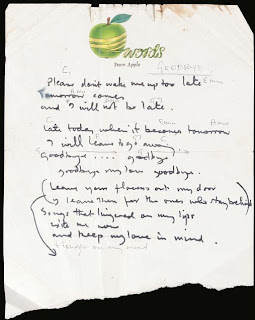 words
From Apple
GOODBYE
C. Emin
Please don't wake me up too late
Tomorrow comes
and I will not be late.
C Emin
Late today when it becomes tomorrow
I will leave to go away
Goodbye .... goodbye
goodbye my love goodbye.
(Leave your flowers out my door
I leave them for the ones who stay behind
Songs that lingered on my lips
with me now
and keep my love in mind.
on my mind